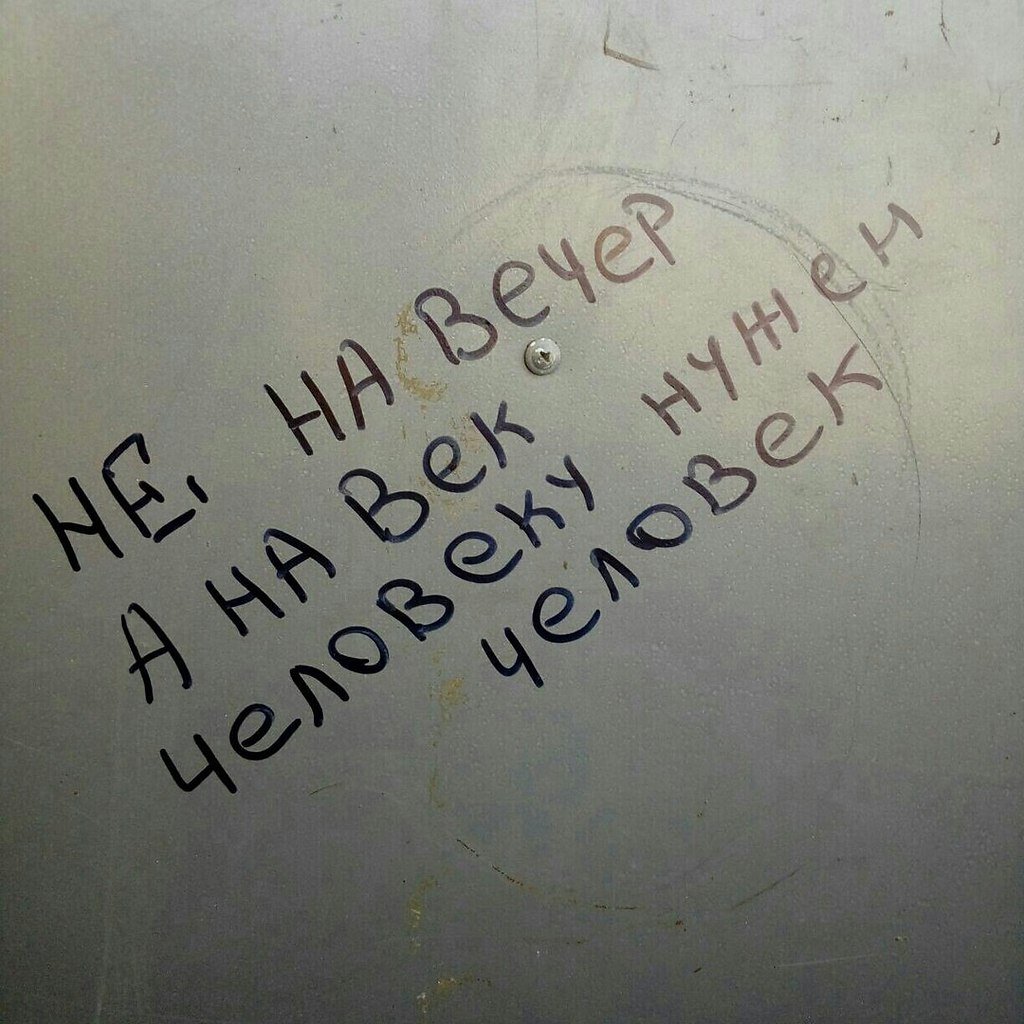 НЕ, НА ВЕЧЕР
А НА ВЕК
ЧЕЛОВЕКУ НУЖЕН
ЧЕЛОВЕК